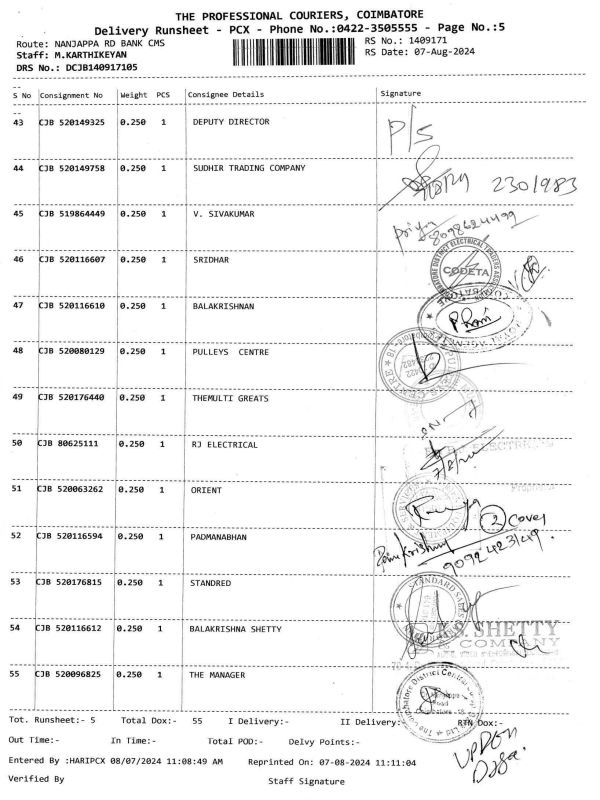 THE PROFESSIONAL COURIERS, COIMBATORE
Delivery Runsheet - PCX - Phone No.:0422-3505555 - Page No.:5
Route: NANJAPPA RD BANK CMS RS No.: 1409171
Staff: M.KARTHIKEYAN RS Date: 07-Aug-2024
DRS No.: DCJB140917105
S No Consignment No Weight PCS Consignee Details Signature
43 CJB 520149325 0.250 1 DEPUTY DIRECTOR P/S
44 CJB 520149758 0.250 1 SUDHIR TRADING COMPANY 2301983
45 CJB 519864449 0.250 1 V. SIVAKUMAR Priya 8098624499
46 CJB 520116607 0.250 1 SRIDHAR CODETA
47 CJB 520116610 0.250 1 BALAKRISHNAN
48 CJB 520080129 0.250 1 PULLEYS CENTRE
49 CJB 520176440 0.250 1 THEMULTI GREATS
50 CJB 80625111 0.250 1 RJ ELECTRICAL
51 CJB 520063262 0.250 1 ORIENT
2 Cover
52 CJB 520116594 0.250 1 PADMANABHAN
53 CJB 520176815 0.250 1 STANDRED
54 CJB 520116612 0.250 1 BALAKRISHNA SHETTY SHETTY
& COMPANY
55 CJB 520096825 0.250 1 THE MANAGER
Tot. Runsheet:- 5 Total Dox:- 55 I Delivery:- II Delivery:- RTN Dox:-
Out Time:- In Time:- Total POD:- Delvy Points:-
Entered By :HARIPCX 08/07/2024 11:08:49 AM Reprinted On: 07-08-2024 11:11:04
Verified By Staff Signature